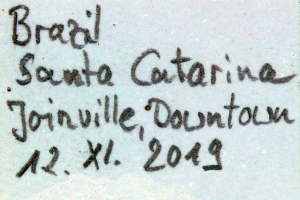 Brazil
Santa Catarina
Joinville, Downtown
12. XI. 2019